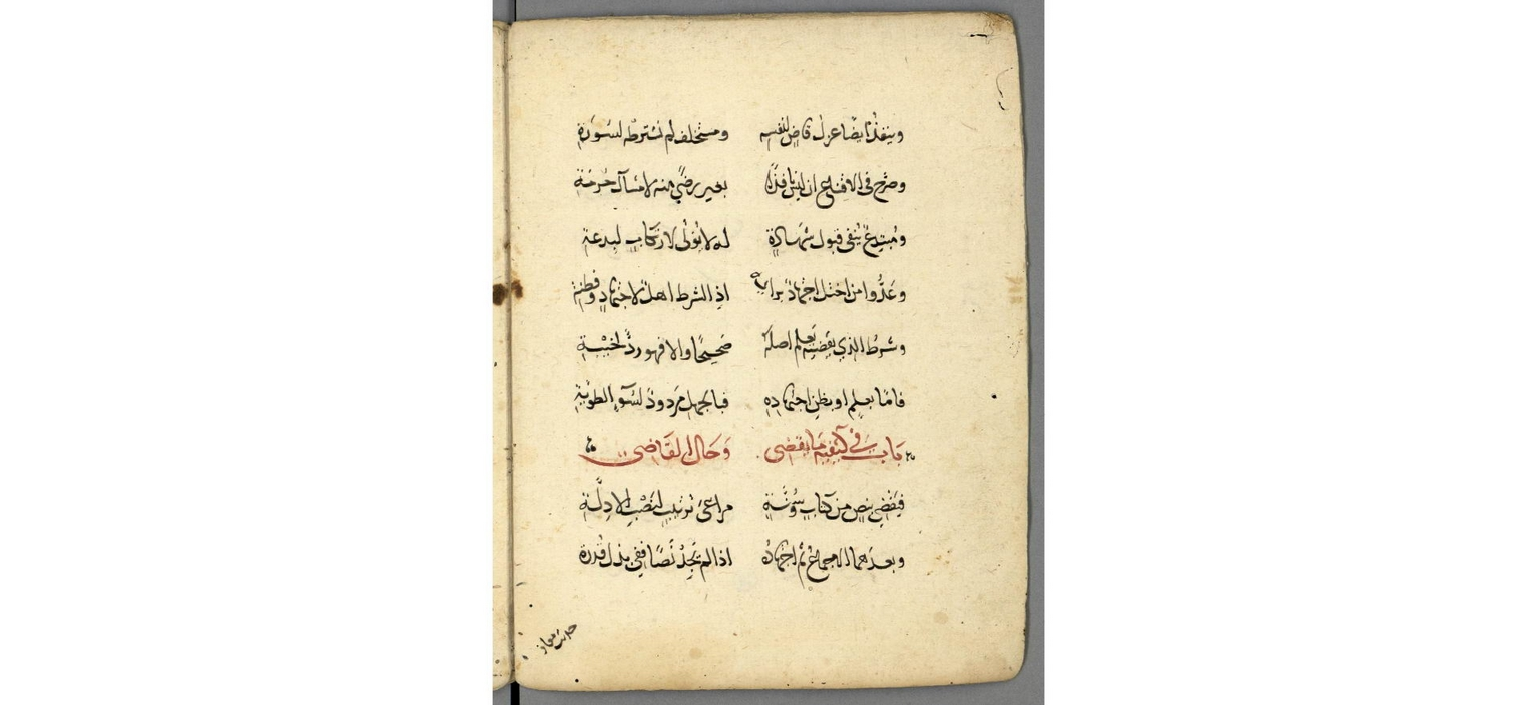 وينفذ ايضا عزل قاض لنفسه ومستخلف لم نشترطه لسورة
وصرح في الاقناع ان ليس نافذا بغير رضي منه لامساك حرمة
ومبتدع ينفى قبول شهادة له لا تولى لارتكاب لبدعة
وعدوا من اختل اجتهاد برايه اذ الشرط اهل لاجتهاد وفطنة
وشرط الذي يقضيه يعلم اصله صحيحا والا فهو رد لخيبة
فاما بعلم او بظن اجتهاده فبالجهل مردود لسوء الطوية
باب في كيفية ما يقضى وحال القاضي
فيقضي بنص من كتاب وسنة مراعى ترتيب لنصب الادلة
وبعدهما الاجماع ثم اجتهاده اذا لم تجد نصا ففي بذل قدرة
حديث معاذ